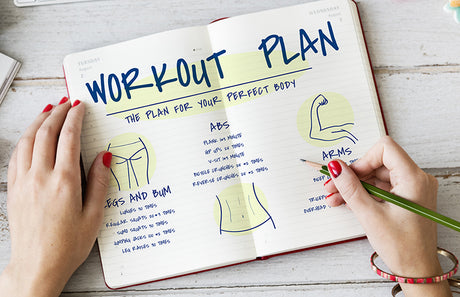 TUESDAY
August
WEDNESDAY
August
WORKOUT PLAN
THE PLAN FOR YOUR PERFECT BODY
ABS
PLANK 1 MINUTE
SIT UPS 20 TIMES
V-SIT 1 MINUTE
BICYCLE CRUNCHES 20 TIMES
REVERSE CRUNCHES 20 TIMES
ARMS
LEGS AND BUM
LUNGES 20 TIMES
REGULAR SQUATS 20 TIMES
SUMO SQUATS 20 TIMES
JUMPING JACKS 20 TIMES
LEG RAISES 20 TIMES